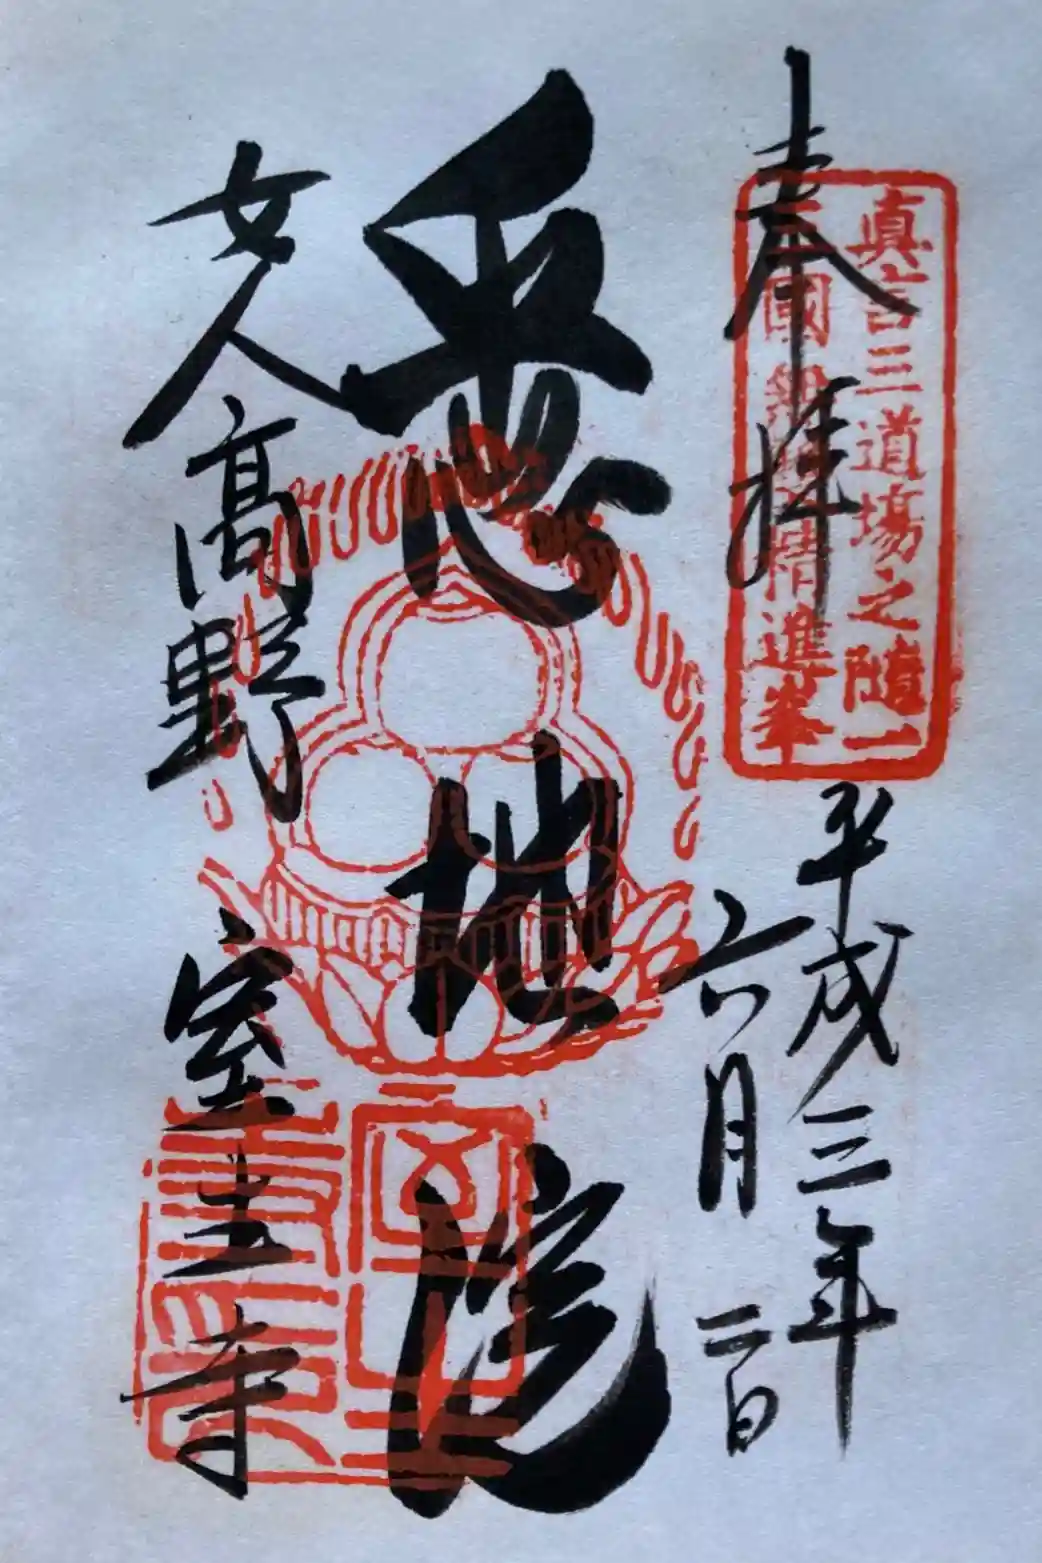 奉拝
真言三道場之隨一
國無精進峯
平成三年
六月二日
悉地院
女人高野 室生寺